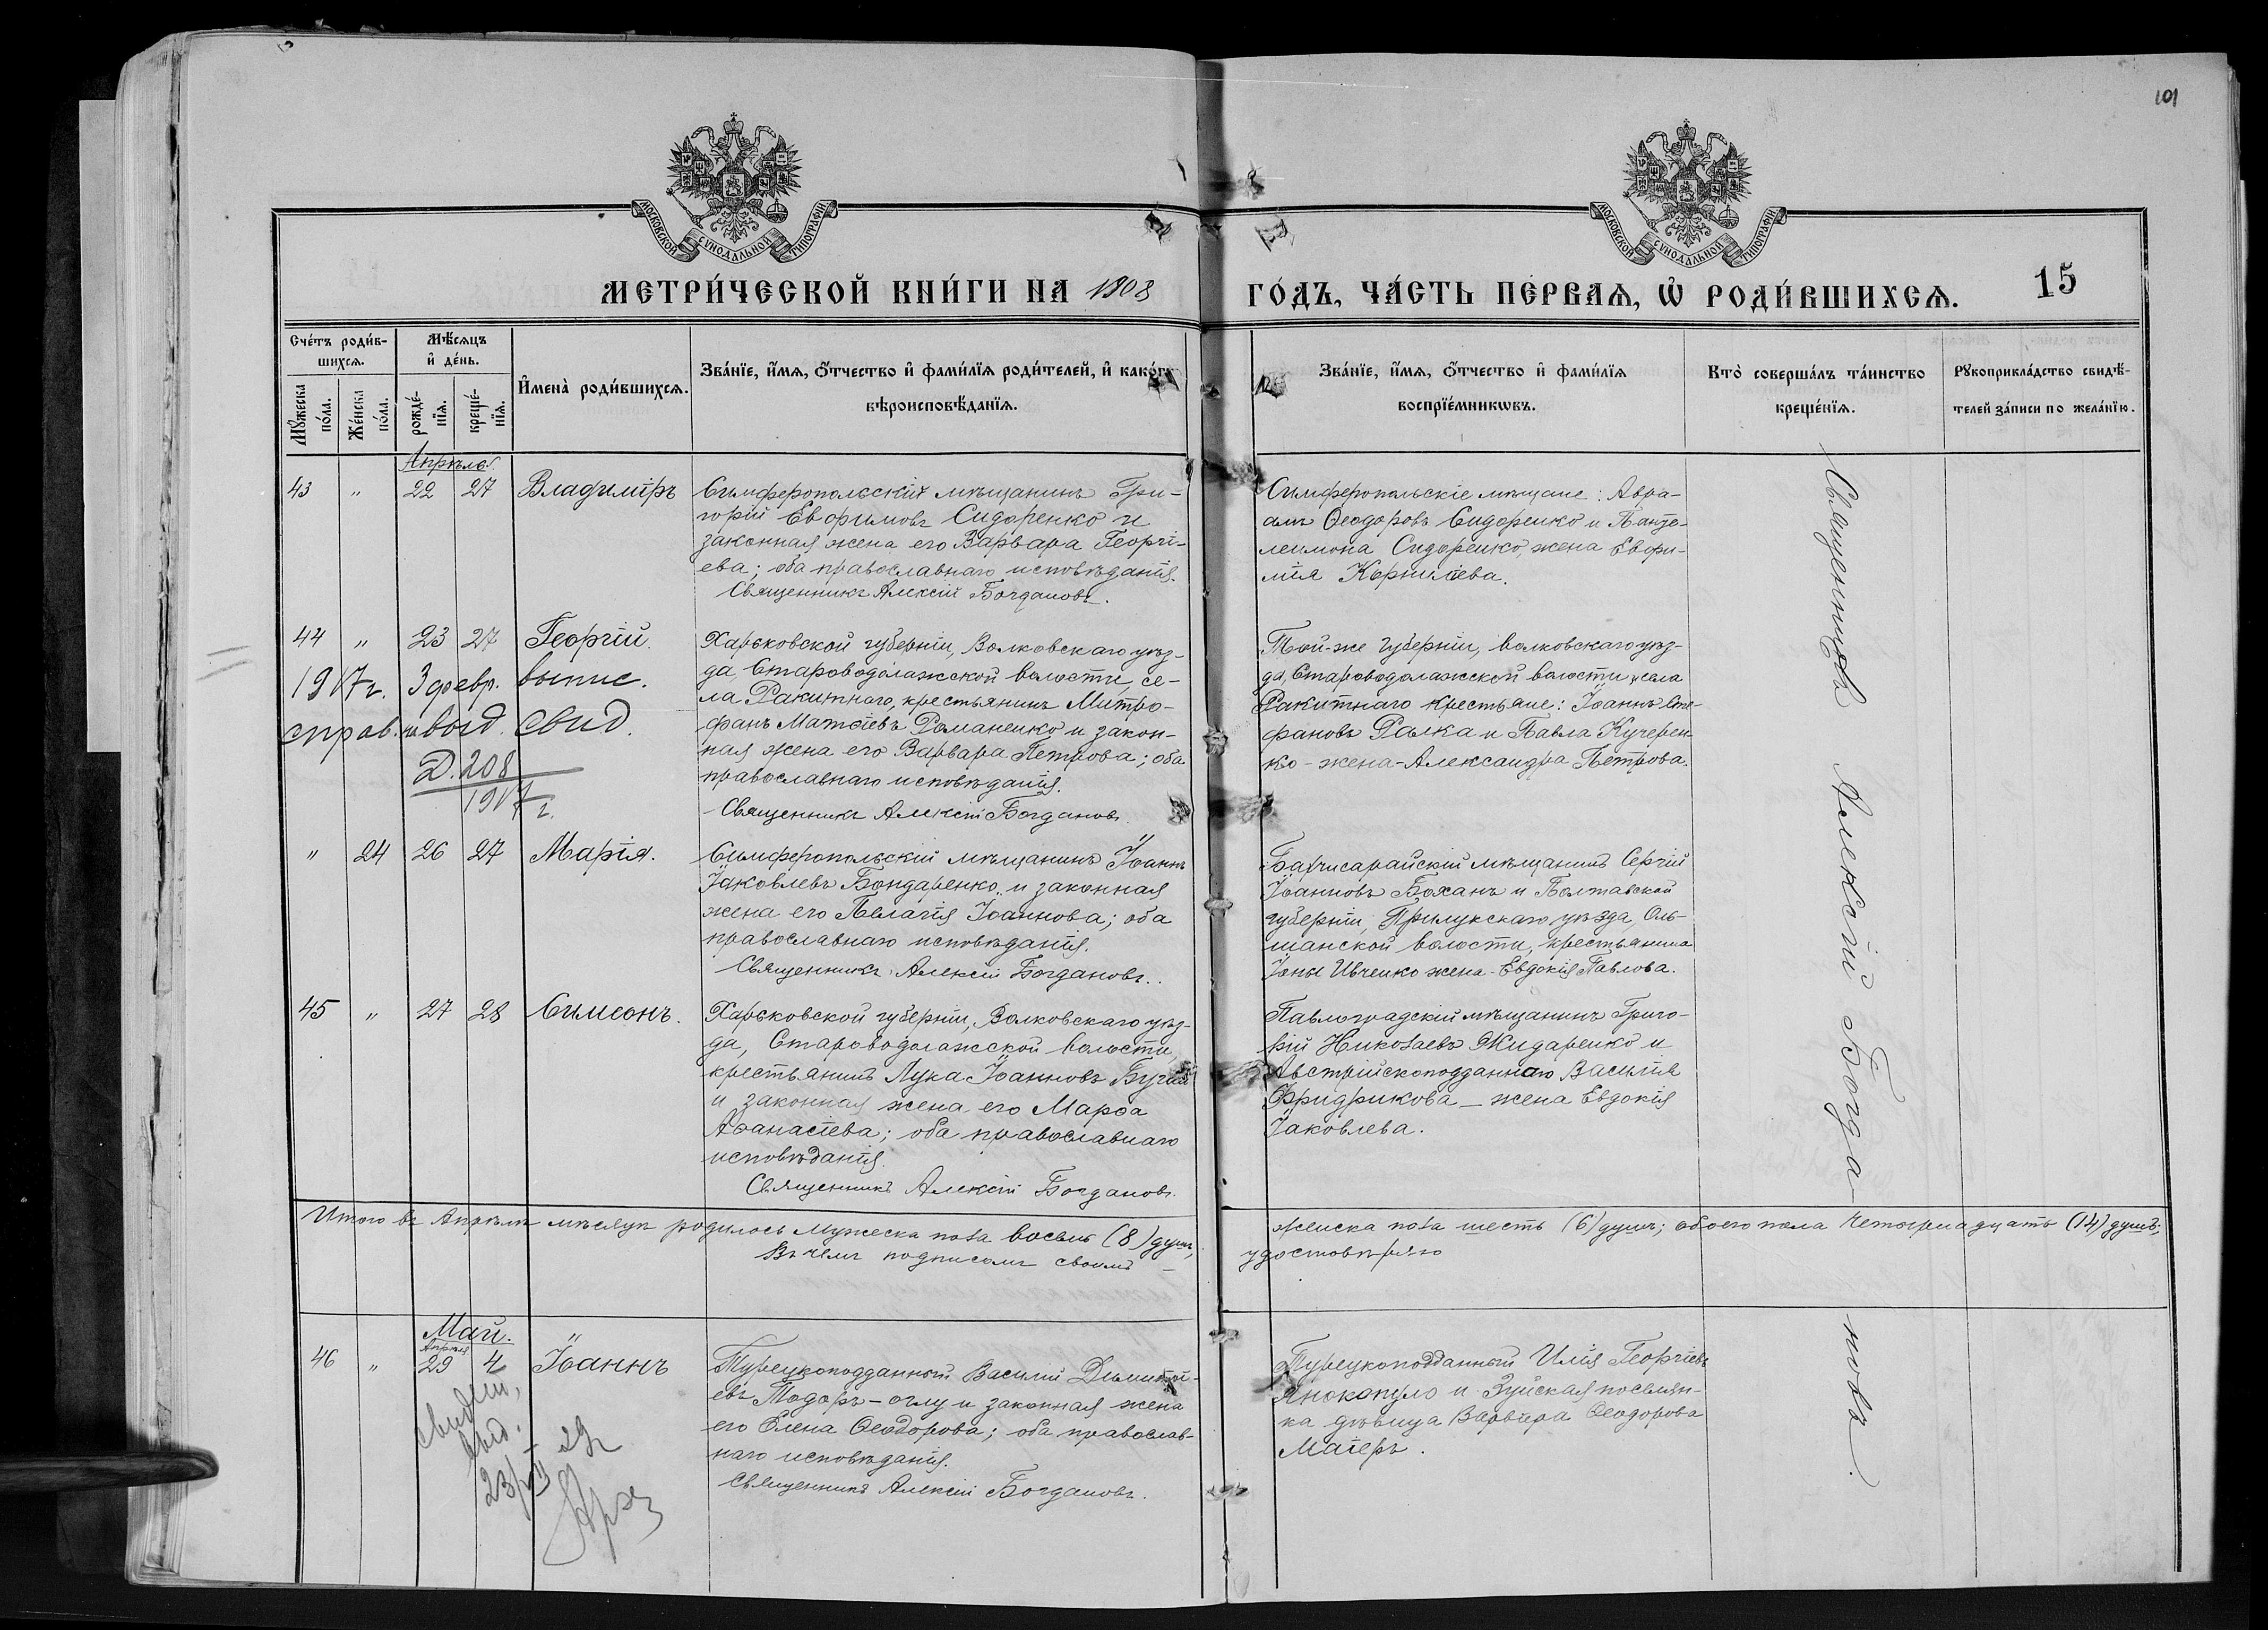 101
МОСКОВСКОЙ СѴНОДАЛЬНОЙ ТИПОГРАФІИ
МОСКОВСКОЙ СѴНОДАЛЬНОЙ ТИПОГРАФІИ
МЕТРИ́ЧЕСКОЙ КНИ́ГИ НА 1908
ГО́ДЪ, ЧА́СТЬ ПЕ́РВАѦ, Ѡ҆ РОДИ́ВШИХСѦ.
15
Сче́тъ роди́в-
шихсѧ.
Мѣ́сѧцъ
и҆ де́нь.
И҆мена̀ роди́вшихсѧ.
Зва́нїе, и҆́мѧ, ѻ҆́тчество и҆ фами́лїѧ роди́телей, и҆ како́гѡ
вѣроисповѣ́данїѧ.
Мꙋ́жеска
по́ла.
Же́нска
по́ла.
рожде́-
нїѧ.
креще́-
нїѧ.
Зва́нїе, и҆́мѧ, ѻ҆́тчество и҆ фами́лїѧ
воспрїе́мникѡвъ.
Кто̀ соверша́лъ та́инство
креще́нїѧ.
Рꙋкоприкла́дство свидѣ́-
телей за́писи по жела́нїю.
Апрѣль.
43 " 22 27 Владиміръ
Симферопольскій мѣщанинъ Гри-
горій Евфимовъ Сидоренко и
законная жена его Варвара Георгі-
ева; оба православнаго исповѣданія.
Священникъ Алексій Богдановъ.
Симферопольскіе мѣщане: Авра-
амъ Ѳеодоровъ Сидоренко и Панте-
леимона Сидоренко, жена Евфи-
мія Корнилiева.
44 " 23 27 Георгій.
1917 г. 3 февр. выпис.
справ. и выд. свид.
Д. 208
1917 г.
Харьковской губерніи, Волковскаго уѣз-
да, Староводолажской волости, се-
ла Ракитнаго, крестьянинъ Митро-
фанъ Матѳіевъ Романенко и закон-
ная жена его Варвара Петрова; оба
православнаго исповѣданія.
Священникъ Алексій Богдановъ.
Той-же губерніи, волковскаго уѣз-
да, Староводолажской волости, села
Ракитнаго крестьяне: Іоаннъ Сте-
фановъ Ралка и Павла Кучерен-
ко - жена - Александра Петрова.
" 24 26 27 Марія.
Симферопольскій мѣщанинъ Іоаннъ
Іаковлевъ Бондаренко и законная
жена его Пелагія Іоаннова; оба
православнаго исповѣданія.
Священникъ Алексій Богдановъ.
Бахчисарайскій мѣщанинъ Сергій
Іоанновъ Бохан и Полтавской
губерніи, Прилукскаго уѣзда, Оль-
шанской волости, крестьянина
Іоны Ивченко жена - Евдокія Павлова.
45 " 27 28 Симеонъ.
Харьковской губерніи, Волковскаго уѣз-
да, Староводолажской волости,
крестьянинъ Лука Іоанновъ
и законная жена его Марѳа
Аѳанасіева; оба православнаго
исповѣданія.
Священникъ Алексій Богдановъ.
Павлоградскій мѣщанинъ Григо-
рій Николаевъ Жидаренко и
Австрійскоподданнаго Василія
Фридрикова - жена Евдокія
Іаковлева.
Итого въ Апрѣлѣ мѣсяцѣ родилось мужеска пола восемь (8) душъ,
женска пола шесть (6) душъ; обоего пола четырнадцать (14) душъ;
Въ чемъ подписомъ своимъ
удостовѣряю
Май.
Апрѣля
46 " 29 4 Іоаннъ
свидет.
выд.
Турецкоподданный Василій Димитрі-
евъ Тодоръ-оглу и законная жена
его Елена Ѳеодорова; оба православ-
наго исповѣданія.
Священникъ Алексій Богдановъ.
Турецкоподданный Илія Георгіевъ
Янокопуло и Зуйская поселян-
ка дѣвица Варвара Ѳеодорова
Магеръ.
Священникъ Алексій Богда-
новъ.